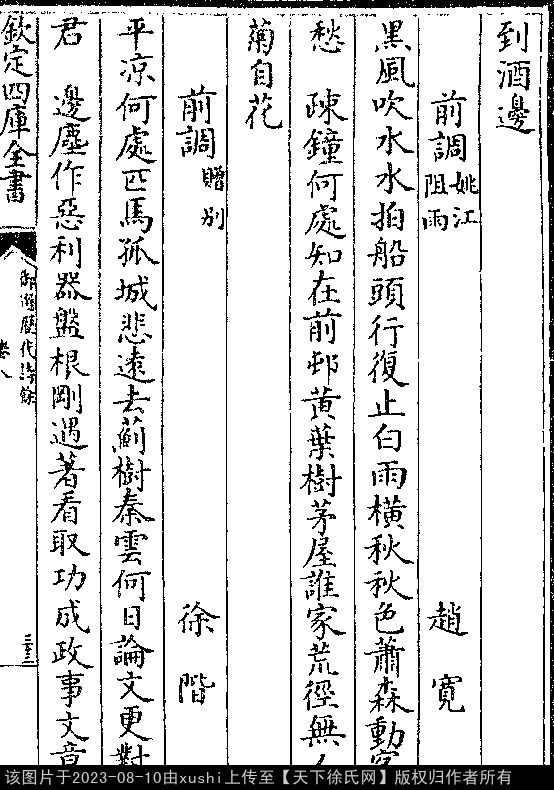 到酒邊
前調 姚江阻雨 趙寬
黑風吹水水拍船頭行復止白雨橫秋秋色蕭森動客
愁 疎鐘何處知在前邨黄葉樹茅屋誰家荒徑無人
菊自花
前調 贈别 徐階
平凉何處匹馬孤城悲遠去薊樹秦雲何日論文更對
君 邊塵作惡利器盤根剛遇著看取功成政事文章
欽定四庫全書
御選歴代詩餘
卷八
三十三
该图片于2023-08-10由xushi上传至【天下徐氏网】版权归作者所有